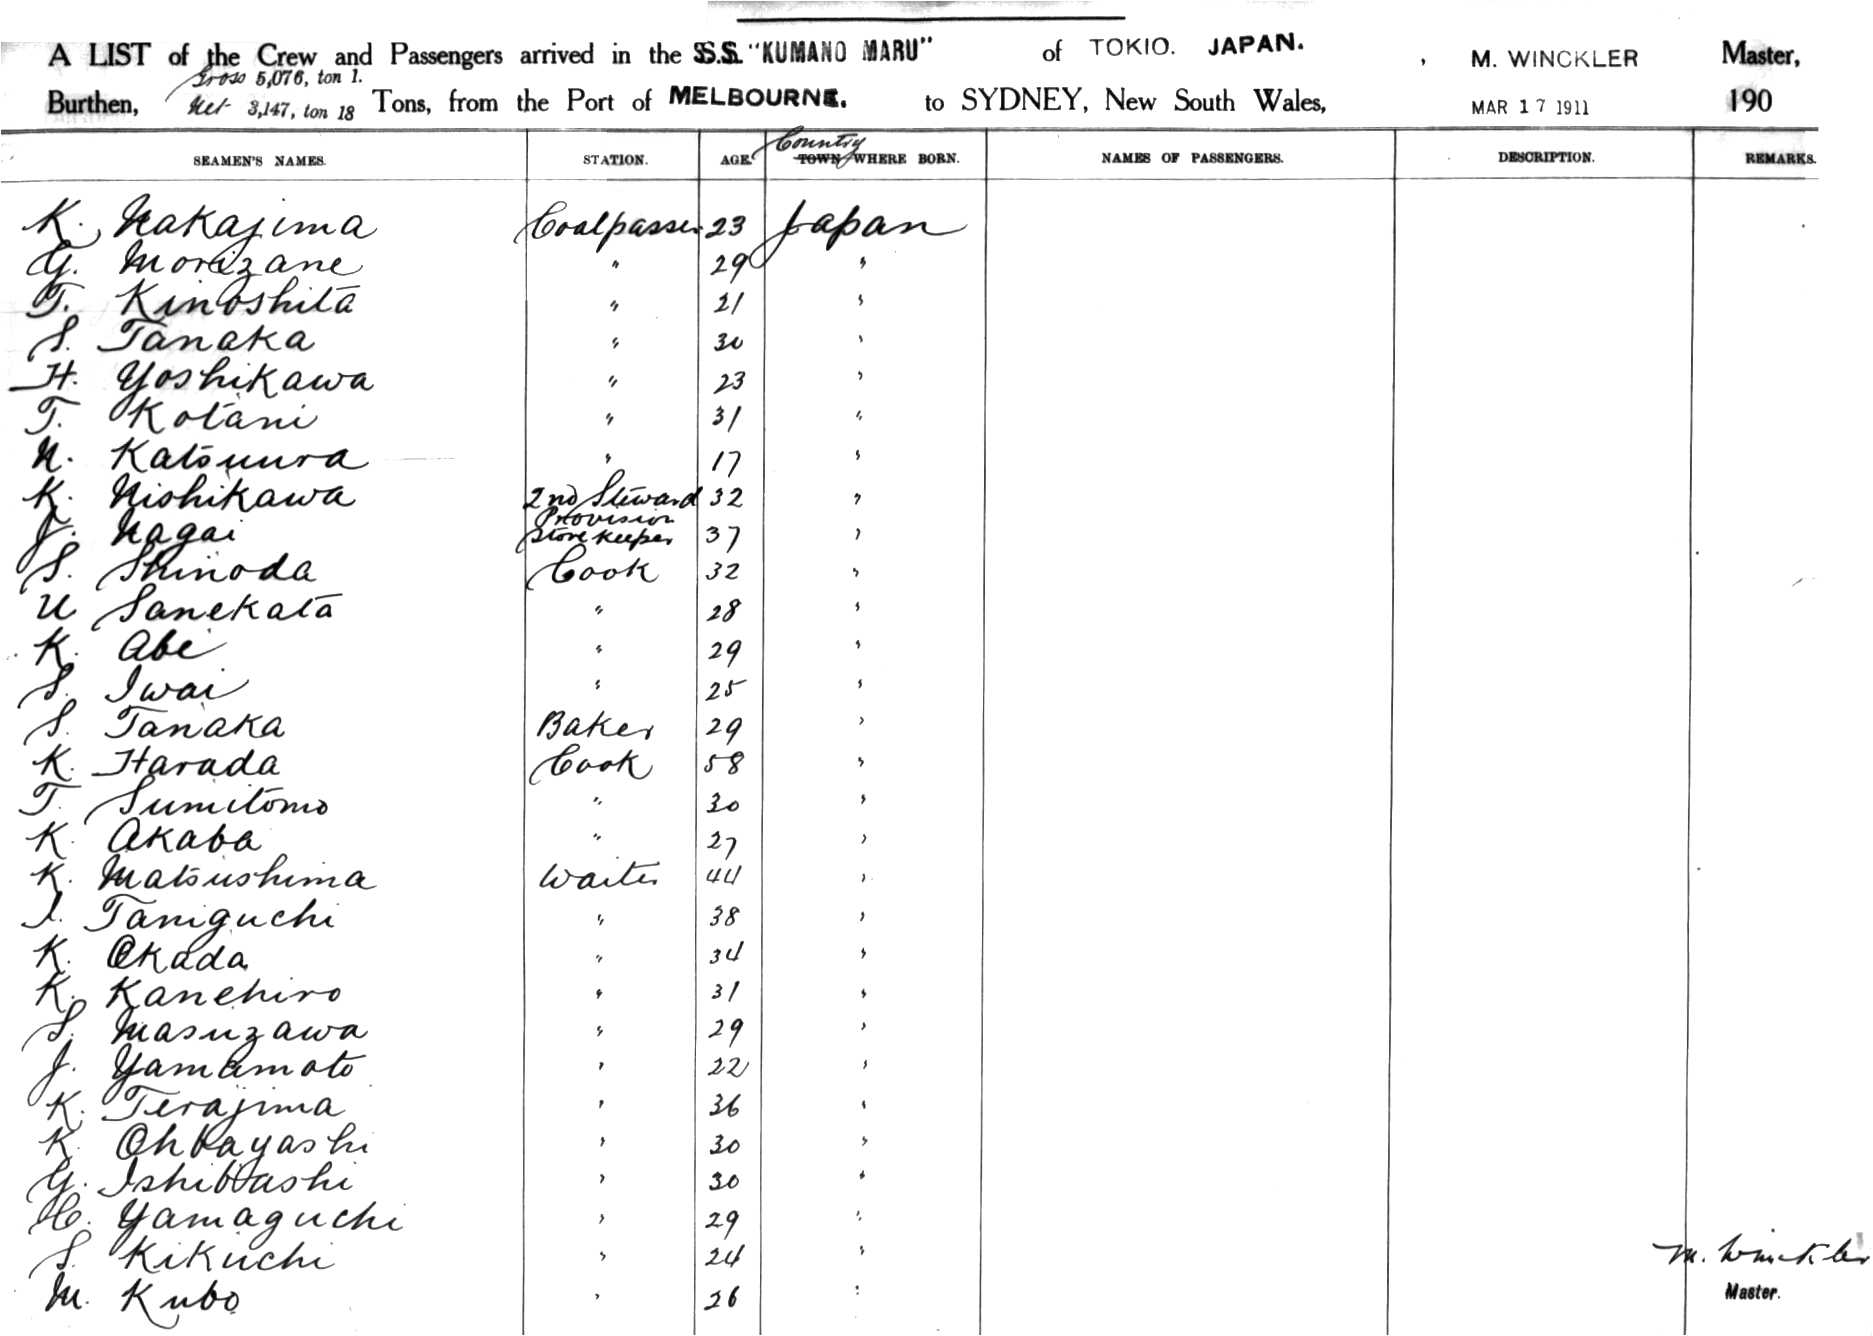 A LIST of the Crew and Passengers arrived in the S.S. "KUMANO MARU" of TOKIO. JAPAN. , M. WINCKLER Master,
Gross 5,076, ton 1.
Burthen, Net 3,147, ton 18 Tons, from the Port of MELBOURNE. to SYDNEY, New South Wales, MAR 17 1911 190
Country
SEAMEN'S NAMES. STATION. AGE. TOWN WHERE BORN. NAMES OF PASSENGERS. DESCRIPTION. REMARKS.
K. Nakajima Coalpasser 23 Japan
G. Morizane " 29 "
T. Kinoshita " 21 "
S. Tanaka " 30 "
H. Yoshikawa " 23 "
T. Kotani " 31 "
N. Katsuura " 17 "
K. Nishikawa 2nd Steward 32 "
J. Nagai Provision Storekeeper 37 "
S. Shinoda Cook 32 "
U Sanekata " 28 "
K. Abe " 29 "
S. Iwai " 25 "
S. Tanaka Baker 29 "
K. Harada Cook 58 "
T. Sumitomo " 30 "
K. Akaba " 27 "
K. Matsushima Waiter 44 "
I. Taniguchi " 38 "
K. Okada " 34 "
K. Kanehiro " 31 "
S. Masuzawa " 29 "
J. Yamamoto " 22 "
K. Terajima " 36 "
K. Ohbayashi " 30 "
G. Ishibashi " 30 "
H. Yamaguchi " 29 "
S. Kikuchi " 24 "
M. Winckler
M. Kubo " 26 "
Master.